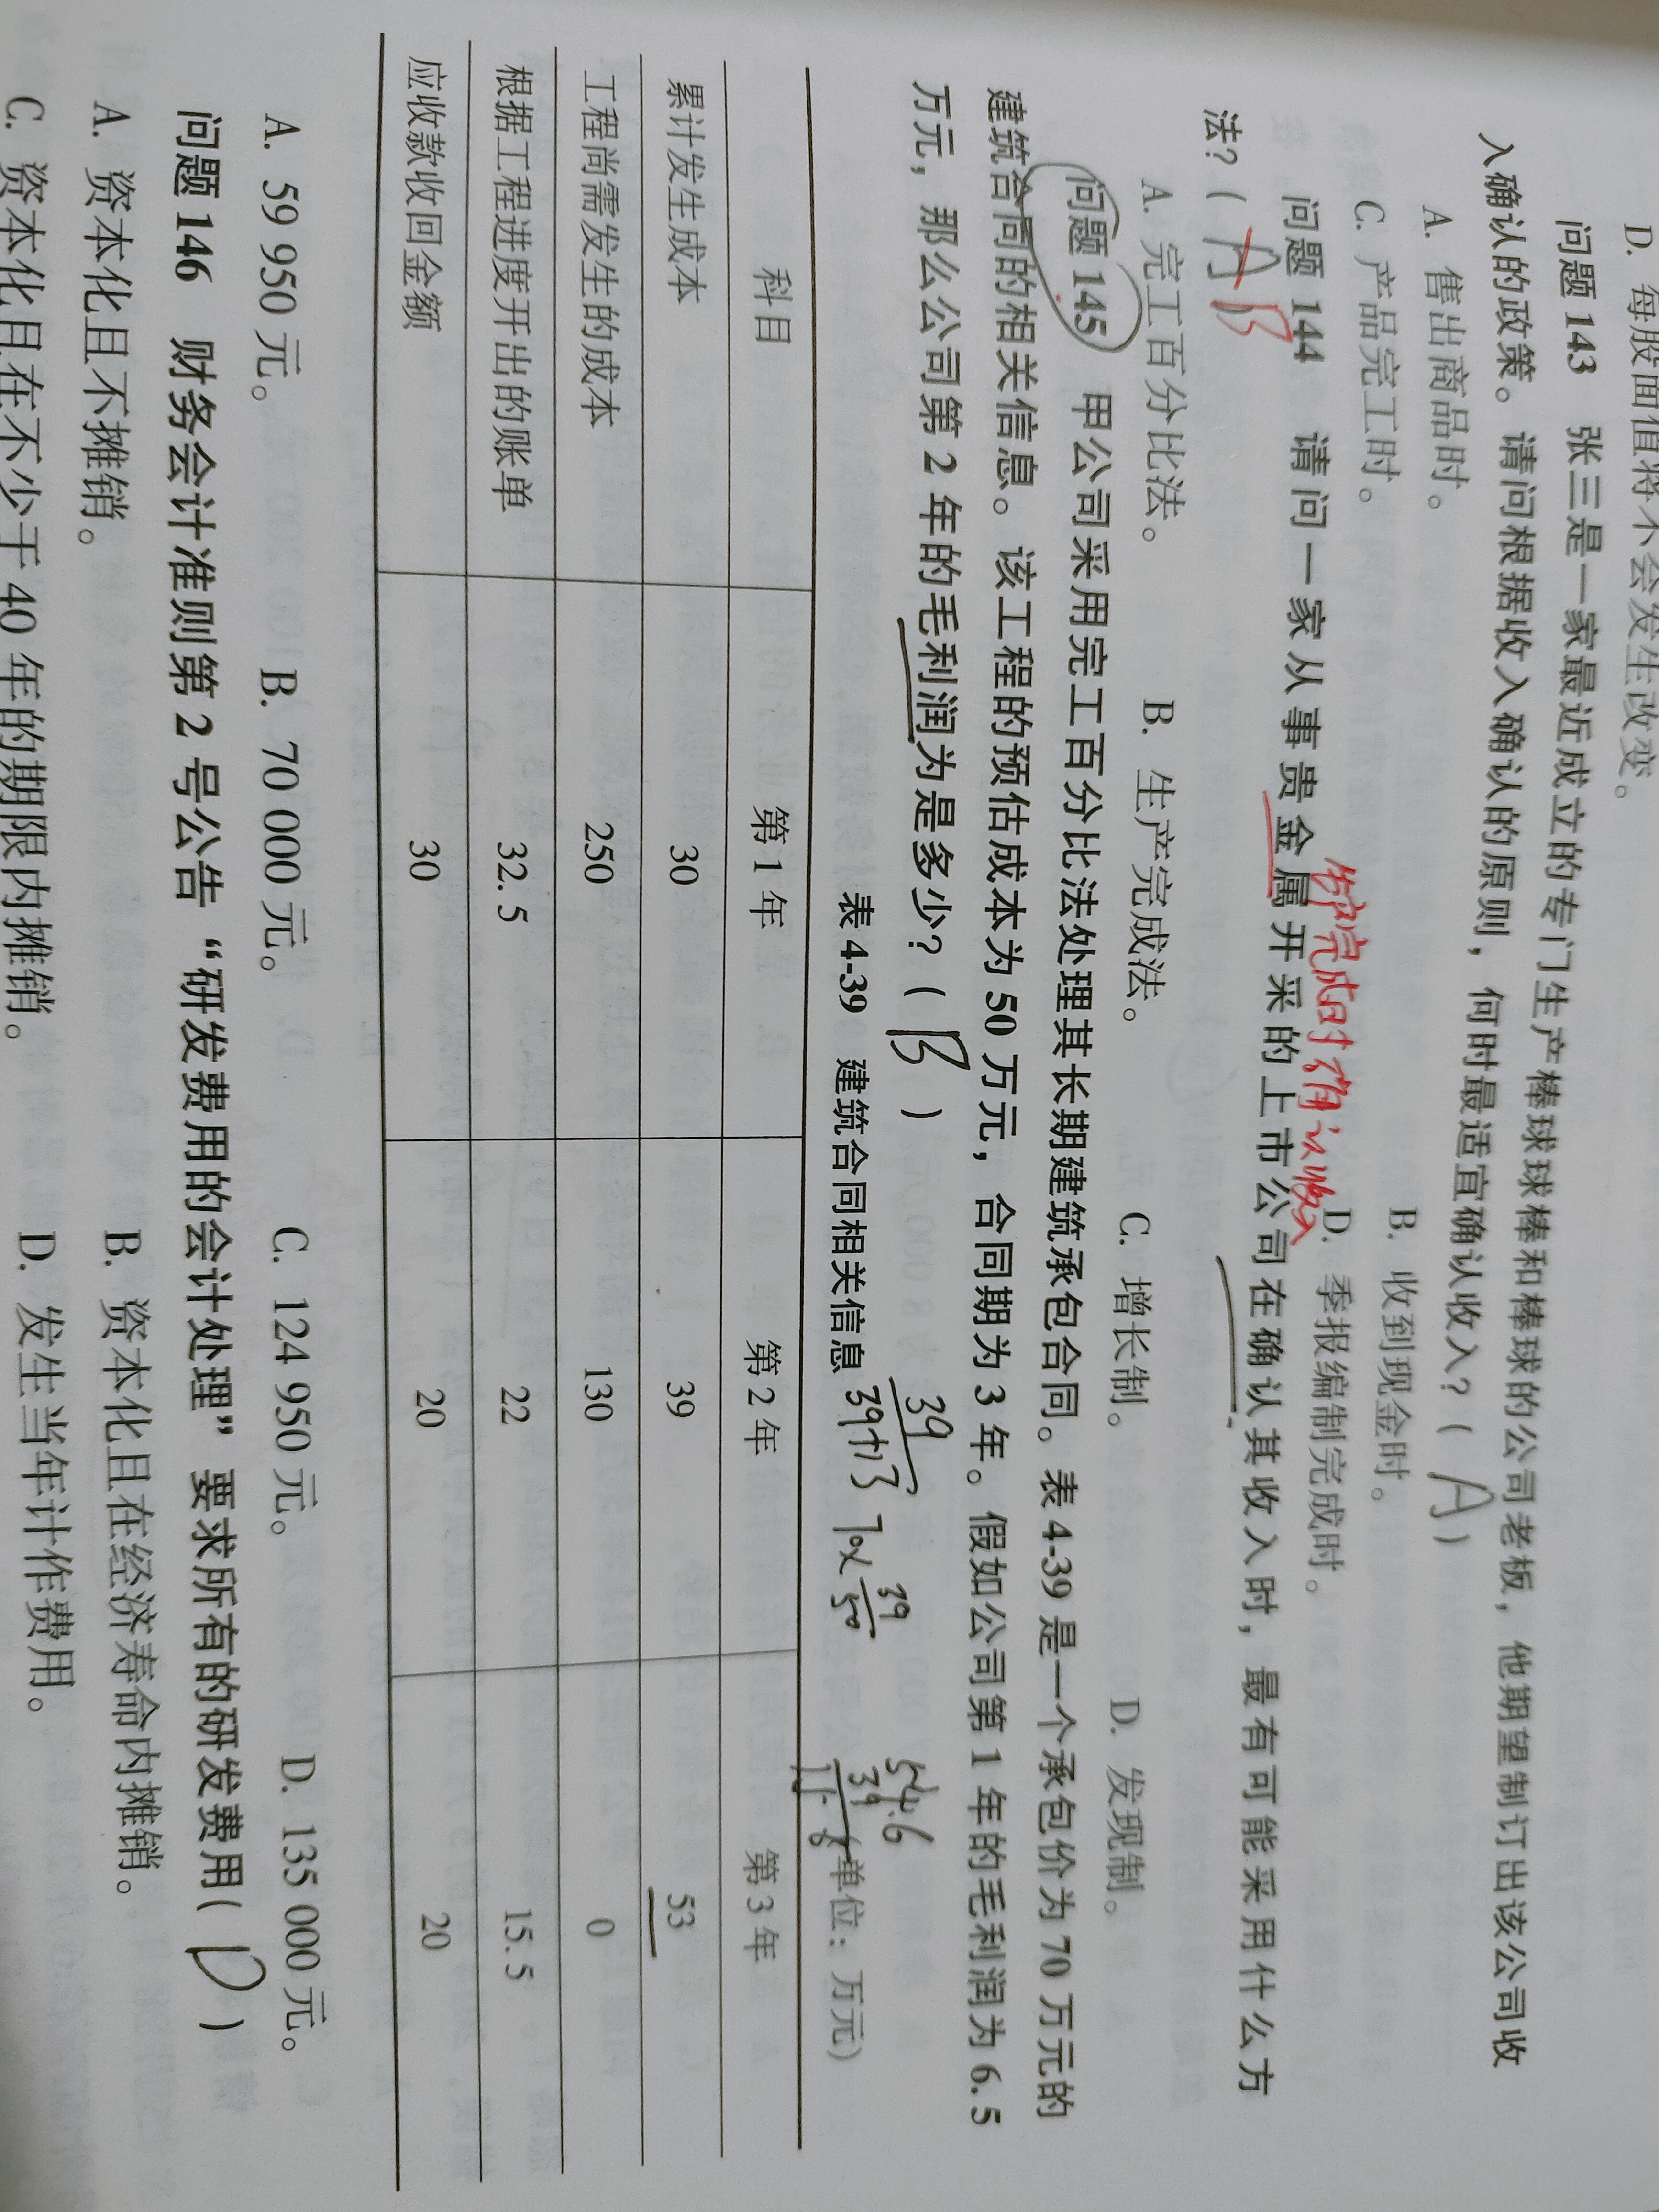 D. 每股面值将不会发生改变。
问题 143 张三是一家最近成立的专门生产棒球球棒和棒球的公司老板，他期望制订出该公司收
入确认的政策。请问根据收入确认的原则，何时最适宜确认收入？( A )
A. 售出商品时。 B. 收到现金时。
C. 产品完工时。 D. 季报编制完成时。
生产完成时确认收入
问题 144 请问一家从事贵金属开采的上市公司在确认其收入时，最有可能采用什么方
法？( A B
A. 完工百分比法。 B. 生产完成法。 C. 增长制。 D. 发现制。
问题 145 甲公司采用完工百分比法处理其长期建筑承包合同。表 4-39 是一个承包价为 70 万元的
建筑合同的相关信息。该工程的预估成本为 50 万元，合同期为 3 年。假如公司第 1 年的毛利润为 6.5
万元，那么公司第 2 年的毛利润为是多少？( B )
39
39+13 70× 39/50
54.6
39
表 4-39 建筑合同相关信息 (单位：万元)
科目 第 1 年 第 2 年 第 3 年
累计发生成本 30 39 53
工程尚需发生的成本 250 130 0
根据工程进度开出的账单 32.5 22 15.5
应收款收回金额 30 20 20
A. 59 950 元。 B. 70 000 元。 C. 124 950 元。 D. 135 000 元。
问题 146 财务会计准则第 2 号公告“研发费用的会计处理”要求所有的研发费用( D )
A. 资本化且不摊销。 B. 资本化且在经济寿命内摊销。
C. 资本化且在不少于 40 年的期限内摊销。 D. 发生当年计作费用。